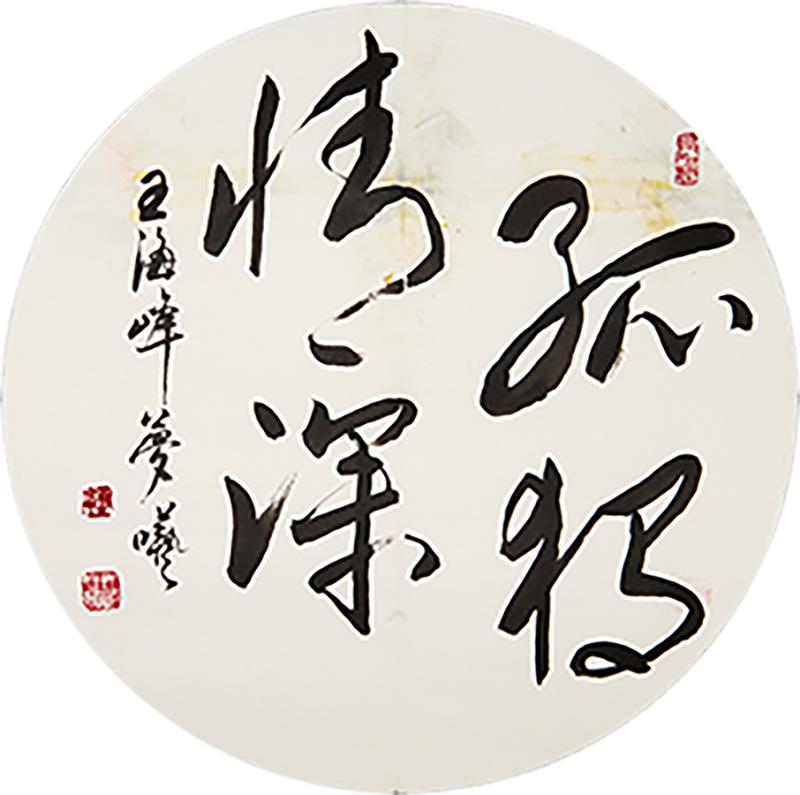 孤独
情深
王海峰梦曦